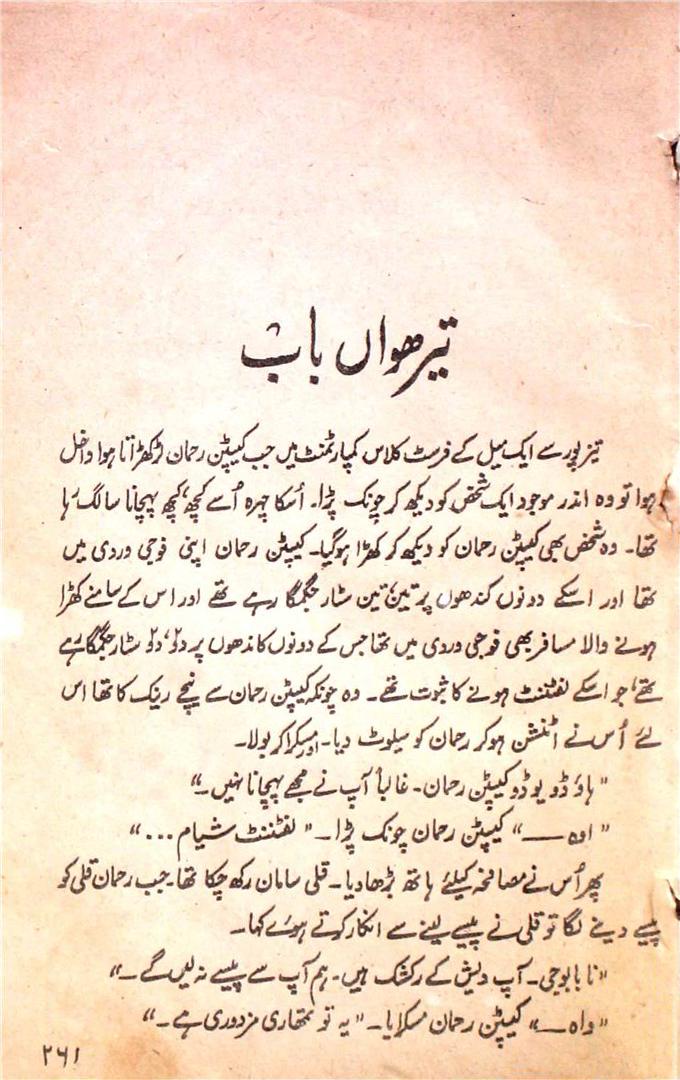 تیرھواں باب
تیزپور سے ایک میل کے فرسٹ کلاس کمپارٹمنٹ میں جب کیپٹن رحمان لڑکھڑاتا ہوا داخل
ہوا تو وہ اندر موجود ایک شخص کو دیکھ کر چونک پڑا۔ اُسکا چہرہ اُسے کچھ، کچھ پہچانا سا لگ رہا
تھا۔ وہ شخص بھی کیپٹن رحمان کو دیکھ کر کھڑا ہوگیا۔ کیپٹن رحمان اپنی فوجی وردی میں
تھا اور اسکے دونوں کندھوں پر تین، تین سٹار جگمگا رہے تھے اور اس کے سامنے کھڑا
ہونے والا مسافر بھی فوجی وردی میں تھا جس کے دونوں کاندھوں پر دو، دو سٹار جگمگا رہے
تھے، جو اسکے لفٹننٹ ہونے کا ثبوت تھے۔ وہ چونکہ کیپٹن رحمان سے نیچے رینک کا تھا اس
لئے اُس نے اٹنشن ہوکر رحمان کو سیلوٹ دیا۔ اور مسکرا کر بولا۔
"ہاؤ ڈو یو ڈو کیپٹن رحمان۔ غالباً آپ نے مجھے پہچانا نہیں۔"
"اوہ ــــ" کیپٹن رحمان چونک پڑا۔ "لفٹننٹ شیام ..."
پھر اُس نے مصافحہ کیلئے ہاتھ بڑھا دیا۔ قلی سامان رکھ چکا تھا۔ جب رحمان قلی کو
پیسے دینے لگا تو قلی نے پیسے لینے سے انکار کرتے ہوئے کہا۔
"نا بابوجی۔ آپ دیش کے رکشک ہیں۔ ہم آپ سے پیسے نہ لیں گے۔"
"واہ ــــ" کیپٹن رحمان مسکرایا۔ "یہ تو تمھاری مزدوری ہے۔"
۲۶۱